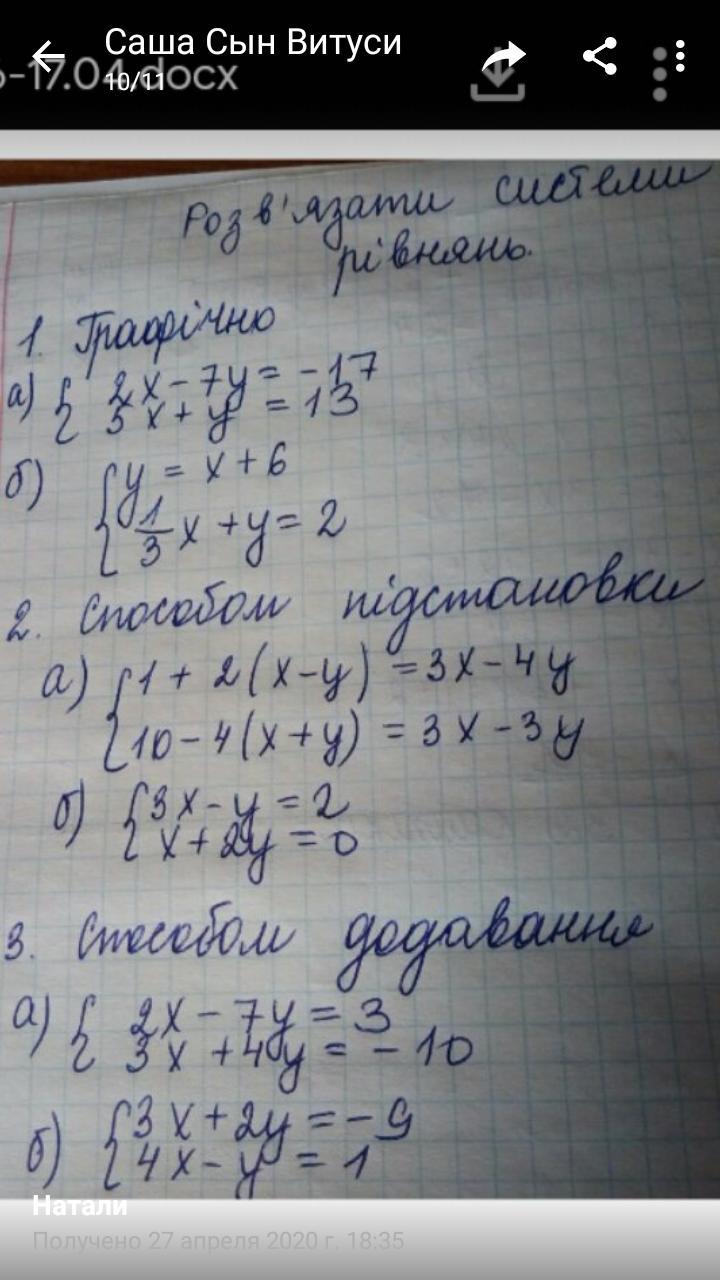 Саша Сын Витуси
6-17.04.docx
10/11
Розв'язати системи
рівнянь.
1. Графічно
а) { 2x - 7y = -17
5x + y = 13
б) { y = x + 6
1/3 x + y = 2
2. Способом підстановки
а) { 1 + 2(x-y) = 3x - 4y
10 - 4(x+y) = 3x - 3y
б) { 3x - y = 2
x + 2y = 0
3. Способом додавання
а) { 2x - 7y = 3
3x + 4y = -10
б) { 3x + 2y = -9
4x - y = 1
Натали
Получено 27 апреля 2020 г. 18:35